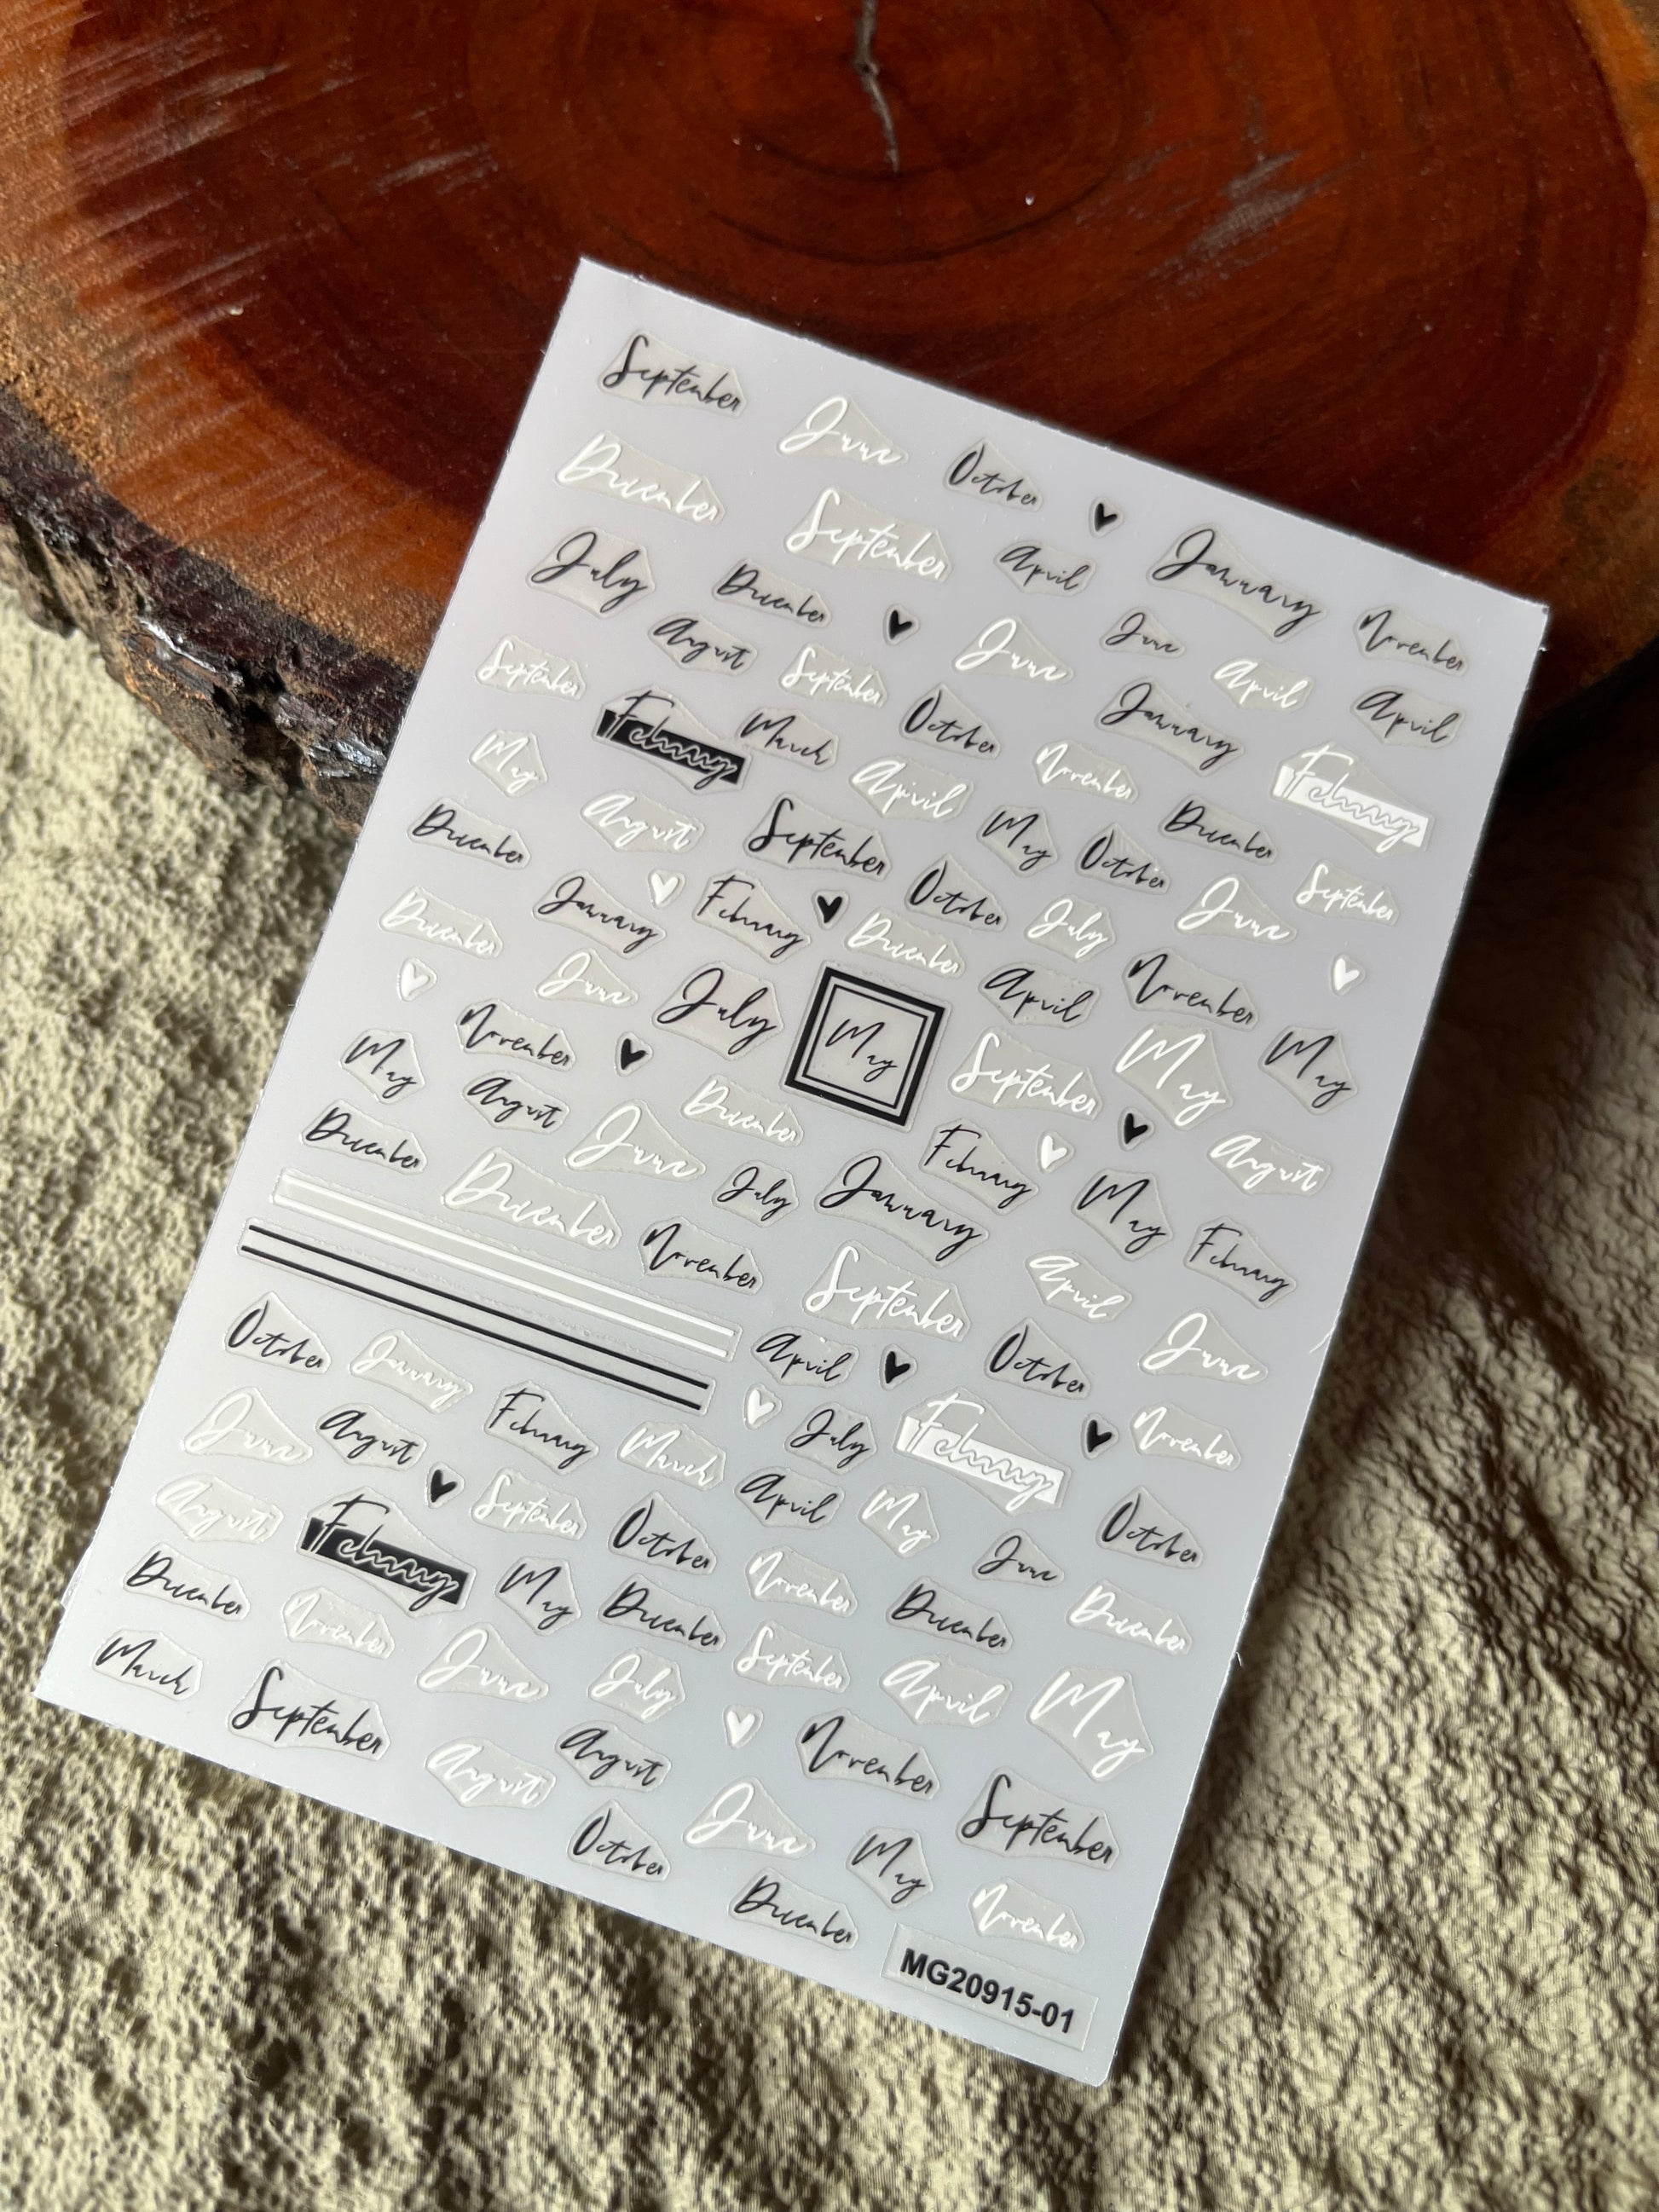 September
June
October
December
September
April
January
November
July
December
June
August
September
June
April
April
September
February
March
October
January
November
February
May
August
April
September
May
October
December
September
December
January
February
October
July
June
December
December
June
July
May
April
November
May
May
November
September
May
August
August
December
February
May
February
December
June
July
January
December
November
September
April
June
October
January
April
October
November
June
August
February
March
July
February
August
February
September
October
April
May
June
October
December
November
May
December
November
December
December
March
September
June
July
September
April
May
August
August
November
September
October
June
May
December
November
MG20915-01